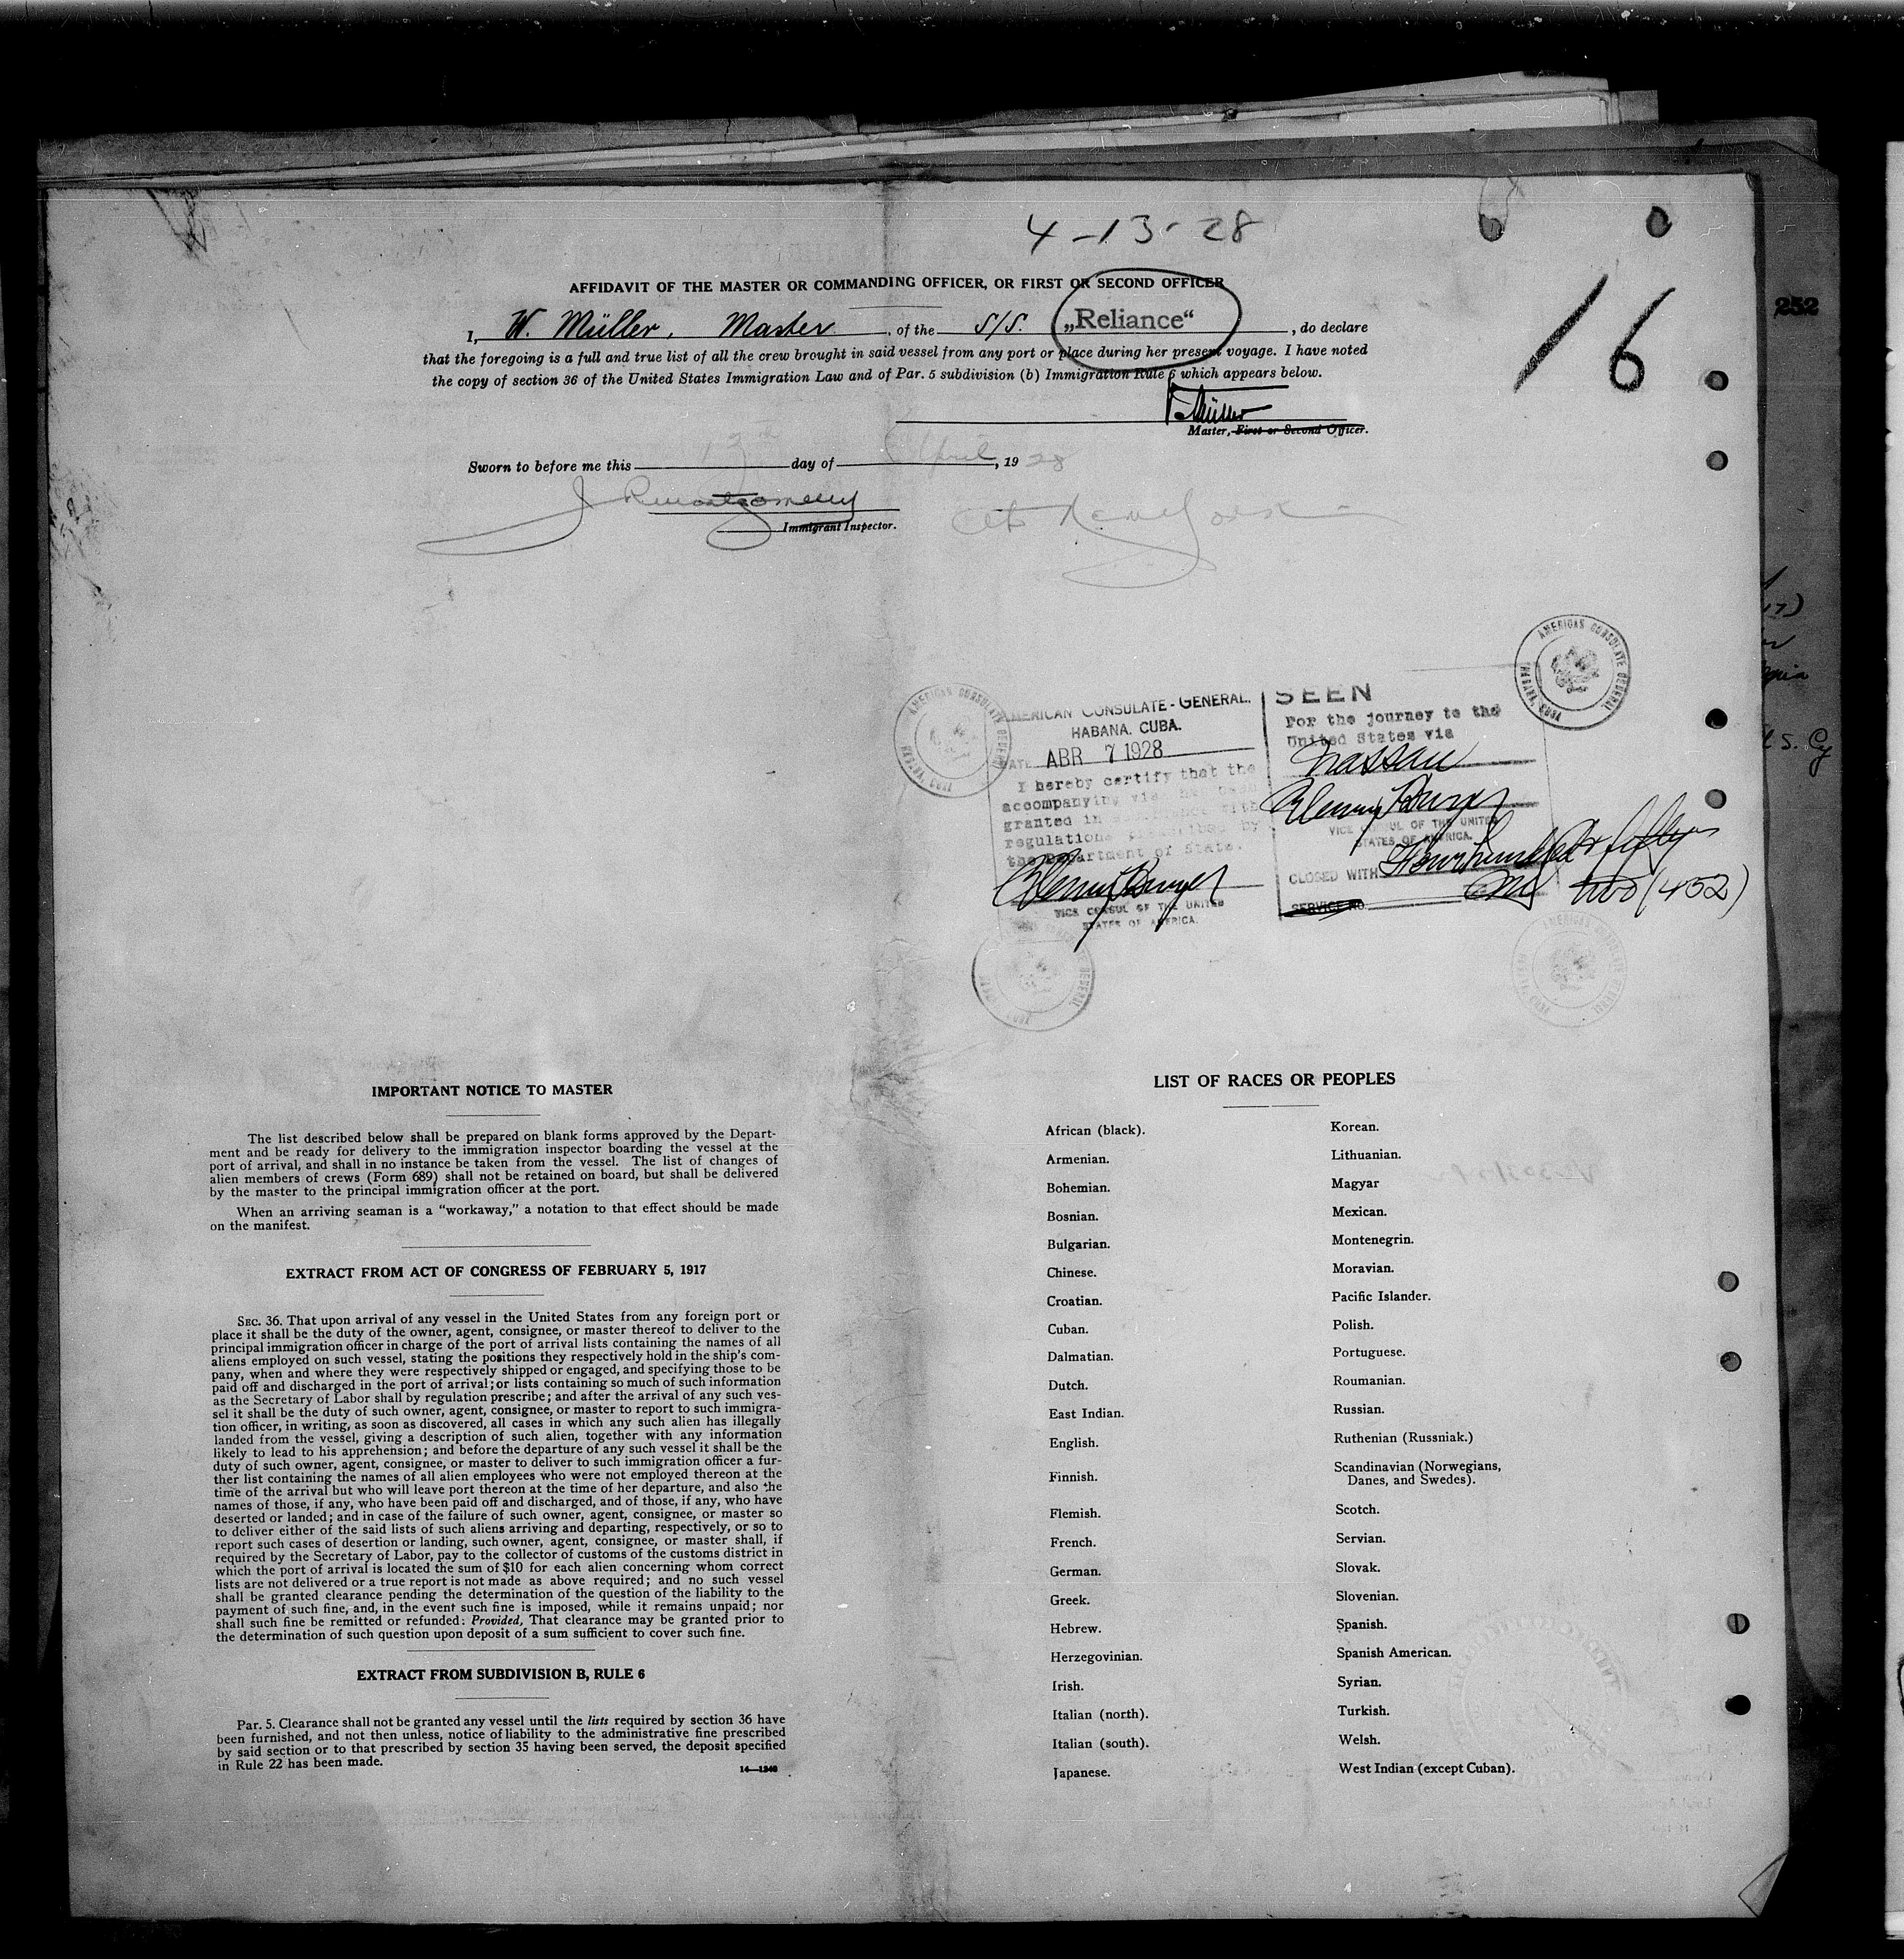 4-13-28
AFFIDAVIT OF THE MASTER OR COMMANDING OFFICER, OR FIRST OR SECOND OFFICER
I, W. Müller, Master, of the S/S. „Reliance“, do declare
that the foregoing is a full and true list of all the crew brought in said vessel from any port or place during her present voyage. I have noted
the copy of section 36 of the United States Immigration Law and of Par. 5 subdivision (b) Immigration Rule 6 which appears below.
16
252
Müller
Master, First or Second Officer.
Sworn to before me this 13th day of April, 1928
J R Montgomery
Immigrant Inspector.
At New York
AMERICAN CONSULATE GENERAL
HABANA, CUBA
AMERICAN CONSULATE-GENERAL.
HABANA. CUBA.
DATE ABR 7 1928
I hereby certify that the
accompanying visa has been
granted in with
regulations prescribed by
the Department of State.
VICE CONSUL OF THE UNITED
STATES OF AMERICA.
SEEN
For the journey to the
United States via
Nassau
VICE CONSUL OF THE UNITED
STATES OF AMERICA.
CLOSED WITH Four hundred & fifty
two (452)
SERVICE NO.
IMPORTANT NOTICE TO MASTER
The list described below shall be prepared on blank forms approved by the Depart-
ment and be ready for delivery to the immigration inspector boarding the vessel at the
port of arrival, and shall in no instance be taken from the vessel. The list of changes of
alien members of crews (Form 689) shall not be retained on board, but shall be delivered
by the master to the principal immigration officer at the port.
When an arriving seaman is a “workaway,” a notation to that effect should be made
on the manifest.
EXTRACT FROM ACT OF CONGRESS OF FEBRUARY 5, 1917
SEC. 36. That upon arrival of any vessel in the United States from any foreign port or
place it shall be the duty of the owner, agent, consignee, or master thereof to deliver to the
principal immigration officer in charge of the port of arrival lists containing the names of all
aliens employed on such vessel, stating the positions they respectively hold in the ship's com-
pany, when and where they were respectively shipped or engaged, and specifying those to be
paid off and discharged in the port of arrival; or lists containing so much of such information
as the Secretary of Labor shall by regulation prescribe; and after the arrival of any such ves-
sel it shall be the duty of such owner, agent, consignee, or master to report to such immigra-
tion officer, in writing, as soon as discovered, all cases in which any such alien has illegally
landed from the vessel, giving a description of such alien, together with any information
likely to lead to his apprehension; and before the departure of any such vessel it shall be the
duty of such owner, agent, consignee, or master to deliver to such immigration officer a fur-
ther list containing the names of all alien employees who were not employed thereon at the
time of the arrival but who will leave port thereon at the time of her departure, and also the
names of those, if any, who have been paid off and discharged, and of those, if any, who have
deserted or landed; and in case of the failure of such owner, agent, consignee, or master so
to deliver either of the said lists of such aliens arriving and departing, respectively, or so to
report such cases of desertion or landing, such owner, agent, consignee, or master shall, if
required by the Secretary of Labor, pay to the collector of customs of the customs district in
which the port of arrival is located the sum of $10 for each alien concerning whom correct
lists are not delivered or a true report is not made as above required; and no such vessel
shall be granted clearance pending the determination of the question of the liability to the
payment of such fine, and, in the event such fine is imposed, while it remains unpaid; nor
shall such fine be remitted or refunded: Provided, That clearance may be granted prior to
the determination of such question upon deposit of a sum sufficient to cover such fine.
EXTRACT FROM SUBDIVISION B, RULE 6
Par. 5. Clearance shall not be granted any vessel until the lists required by section 36 have
been furnished, and not then unless, notice of liability to the administrative fine prescribed
by said section or to that prescribed by section 35 having been served, the deposit specified
in Rule 22 has been made.
14—1240
LIST OF RACES OR PEOPLES
African (black).
Armenian.
Bohemian.
Bosnian.
Bulgarian.
Chinese.
Croatian.
Cuban.
Dalmatian.
Dutch.
East Indian.
English.
Finnish.
Flemish.
French.
German.
Greek.
Hebrew.
Herzegovinian.
Irish.
Italian (north).
Italian (south).
Japanese.
Korean.
Lithuanian.
Magyar
Mexican.
Montenegrin.
Moravian.
Pacific Islander.
Polish.
Portuguese.
Roumanian.
Russian.
Ruthenian (Russniak.)
Scandinavian (Norwegians,
Danes, and Swedes).
Scotch.
Servian.
Slovak.
Slovenian.
Spanish.
Spanish American.
Syrian.
Turkish.
Welsh.
West Indian (except Cuban).